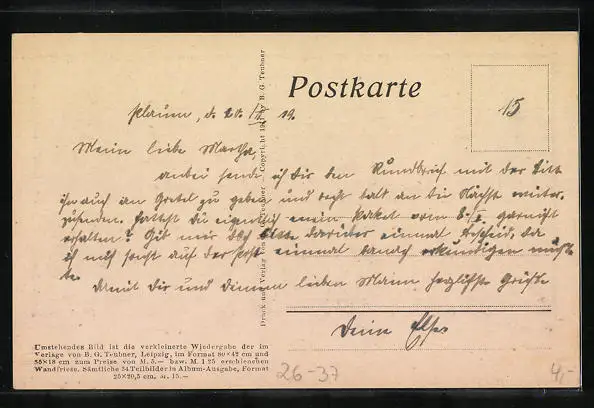 Postkarte
15
Plauen, d. 20. 19.
Meine liebe Martha,
anbei sende ich Dir den Rundbrief mit der Bitte
ihn auch an Gretel zu geben und recht bald an die Nächste weiter-
zusenden. Hattest Du eigentlich mein Paket vom gar nicht
erhalten? Gib mir doch bitte darüber einmal Bescheid, da
ich mich sonst auf der Post einmal danach erkundigen müsste
Damit Dir und Deinem lieben Mann herzlichste Grüße
Deine Else
Druck und Verlag von B. G. Teubner
Copyright by B. G. Teubner
Umstehendes Bild ist die verkleinerte Wiedergabe der im
Verlage von B. G. Teubner, Leipzig, im Format 80×42 cm und
35×18 cm zum Preise von M. 5.— bzw. M. 1.25 erschienenen
Wandfriese. Sämtliche 34 Teilbilder in Album-Ausgabe, Format
25×20,5 cm, M. 15.—
26-37
4,-